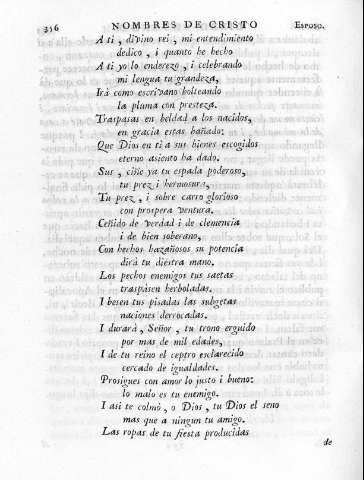 356 NOMBRES DE CRISTO Esposo.
A ti, divino rei, mi entendimiento
dedico, i quanto he hecho
A ti yo lo enderezo, i celebrando
mi lengua tu grandeza,
Irá como escrivano volteando
la pluma con presteza.
Traspasas en beldad a los nacidos,
en gracia estas bañado:
Que Dios en ti a sus bienes escogidos
eterno asiento ha dado.
Sus, ciñe ya tu espada poderoso,
tu prez i hermosura,
Tu prez, i sobre carro glorioso
con prospera ventura.
Ceñido de verdad i de clemencia
i de bien soberano,
Con hechos hazañosos su potencia
dirá tu diestra mano.
Los pechos enemigos tus saetas
traspasen herboladas.
I besen tus pisadas las subgetas
naciones derrocadas.
I durará, Señor, tu trono erguido
por mas de mil edades,
I de tu reino el ceptro esclarecido
cercado de igualdades.
Prosigues con amor lo justo i bueno:
lo malo es tu enemigo.
I asi te colmó, o Dios, tu Dios el seno
mas que a ningun tu amigo.
Las ropas de tu fiesta producidas
de